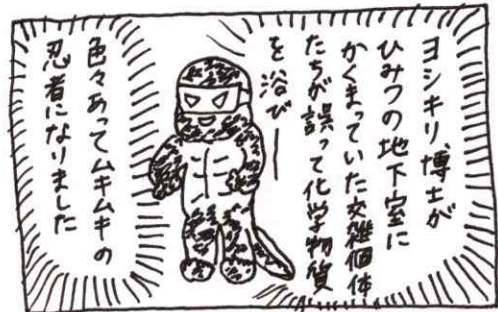 ヨシキリ博士が
ひみつの地下室に
かくまっていた交雑個体
たちが誤って化学物質
を浴びー
色々あってムキムキの
忍者になりました